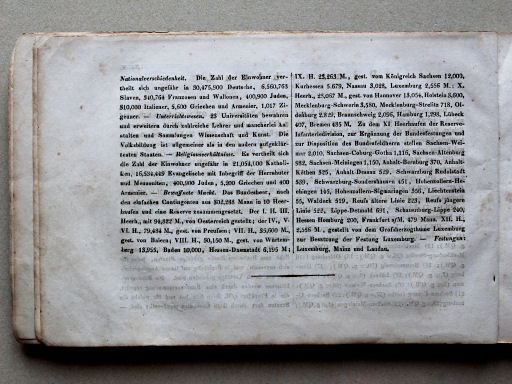 Nationalverschiedenheit. Die Zahl der Einwohner ver-
theilt sich ungefähr in 30,475,900 Deutsche, 6,560,763
Slaven, 340,764 Franzosen und Wallonen, 400,900 Juden,
310,000 Italiener, 5,600 Griechen und Armenier, 1,017 Zi-
geuner. — Unterrichtswesen. 23 Universitäten bewahren
und erweitern durch zahlreiche Lehrer und mancherlei An-
stalten und Sammlungen Wissenschaft und Kunst. Die
Volksbildung ist allgemeiner als in den andern aufgeklär-
testen Staaten. — Religionsverhältnisse. Es vertheilt sich
die Zahl der Einwohner ungefähr in 21,054,100 Katholi-
ken, 16,534,449 Evangelische mit Inbegriff der Herrnhuter
und Mennoniten, 400,900 Juden, 5,200 Griechen und 400
Armenier. — Bewaffnete Macht. Das Bundesheer, nach
den einfachen Contingenten aus 302,288 Mann in 10 Heer-
haufen und eine Reserve zusammengesetzt. Der I. II. III.
Heerh. mit 94,822 M., von Oesterreich gestellt; der IV., V.
VI. H., 79,484 M., gest. von Preussen; VII. H., 35,600 M.,
gest. von Baiern; VIII. H., 30,150 M., gest. von Würtem-
berg 13,955, Baden 10,000, Hessen-Darmstadt 6,195 M;
IX. H. 23,263 M., gest. von Königreich Sachsen 12,000,
Kurhessen 5,679, Nassau 3,028, Luxemburg 2,556 M.; X.
Heerh., 28,067 M., gest. von Hannover 13,054, Holstein 3,600,
Mecklenburg-Schwerin 3,580, Mecklenburg-Strelitz 718, Ol-
denburg 2,829, Braunschweig 2,096, Hamburg 1,298, Lübeck
407, Bremen 485 M. Zu dem XI Heerhaufen der Reserve-
Infanteriedivision, zur Ergänzung der Bundesfestungen und
zur Disposition des Bundesfeldherrn stellen Sachsen-Wei-
mar 2,010, Sachsen-Coburg-Gotha 1,116, Sachsen-Altenburg
982, Sachsen-Meiningen 1,150, Anhalt-Bernburg 370, Anhalt-
Köthen 325, Anhalt-Dessau 529, Schwarzburg-Rudolstadt
539, Schwarzburg-Sondershausen 451, Hohenzollern-He-
chingen 145, Hohenzollern-Sigmaringen 356, Liechtenstein
55, Waldeck 519, Reufs ältere Linie 223, Reufs jüngere
Linie 522, Lippe-Detmold 691, Schaumburg-Lippe 240,
Hessen Homburg 200, Frankfurt a/M. 479 Mann. XII. H.,
2,556 M., gestellt von dem Großherzogthume Luxemburg
zur Besatzung der Festung Luxemburg. — Festungen:
Luxemburg, Mainz und Landau.